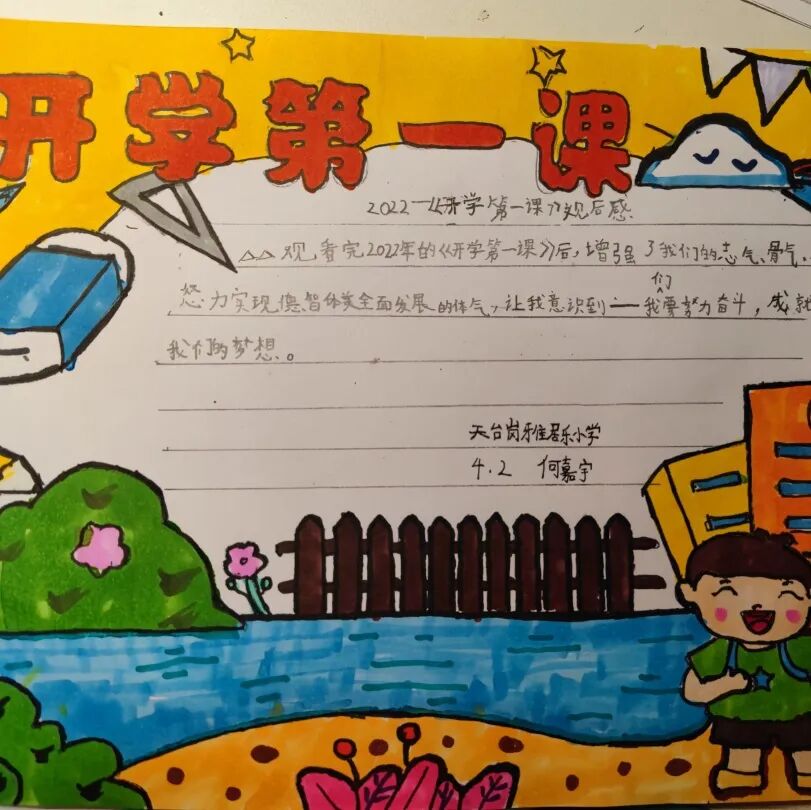 开学第一课
2022《开学第一课》观后感
观看完2022年的《开学第一课》后,增强了我们的志气、骨气、
努力实现德智体美全面发展的体气,让我意识到一我们要努力奋斗,成就
我们的梦想。
天台岗雅居乐小学
4.2 何嘉宇